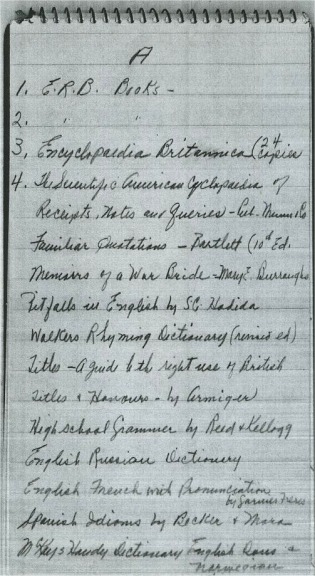 A
1. E.R.B. Books -
2. " "
3. Encyclopaedia Britannica (24 Copies
4. The Scientific American Cyclopaedia of
Receipts, Notes and Queries - Pub. Munn & Co
Familiar Quotations - Bartlett (10th Ed.
Memoirs of a War Bride - Mary E. Burroughs
Pitfalls in English by SC Hadida
Walkers Rhyming Dictionary (revised ed)
Titles - A guide to the right use of British
Titles & Honours - by Armiger
High school Grammer by Reed & Kellogg
English Russian Dictionary
English French with Pronunciation
by Garnier Freres
Spanish Idioms by Becker & Mora
McKays Handy Dictionary English Dano &
Norwegian